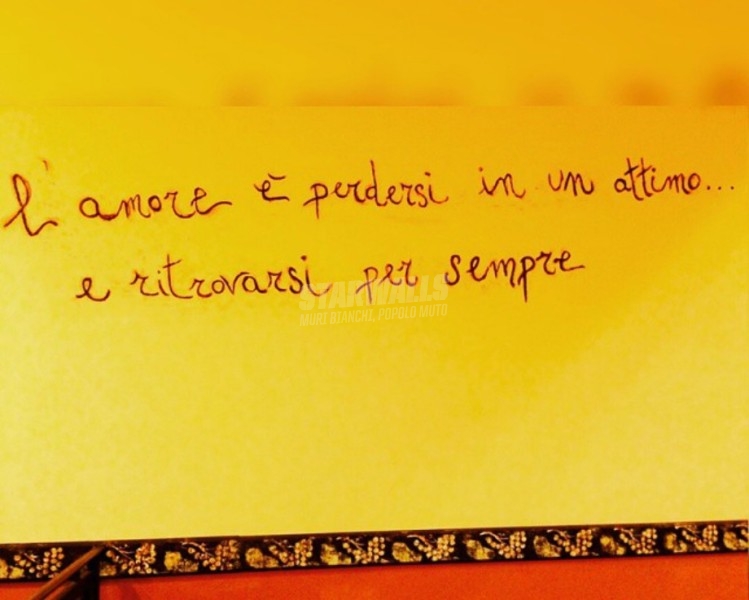 l'amore è perdersi in un attimo...
e ritrovarsi per sempre
STARWALLS
MURI BIANCHI, POPOLO MUTO